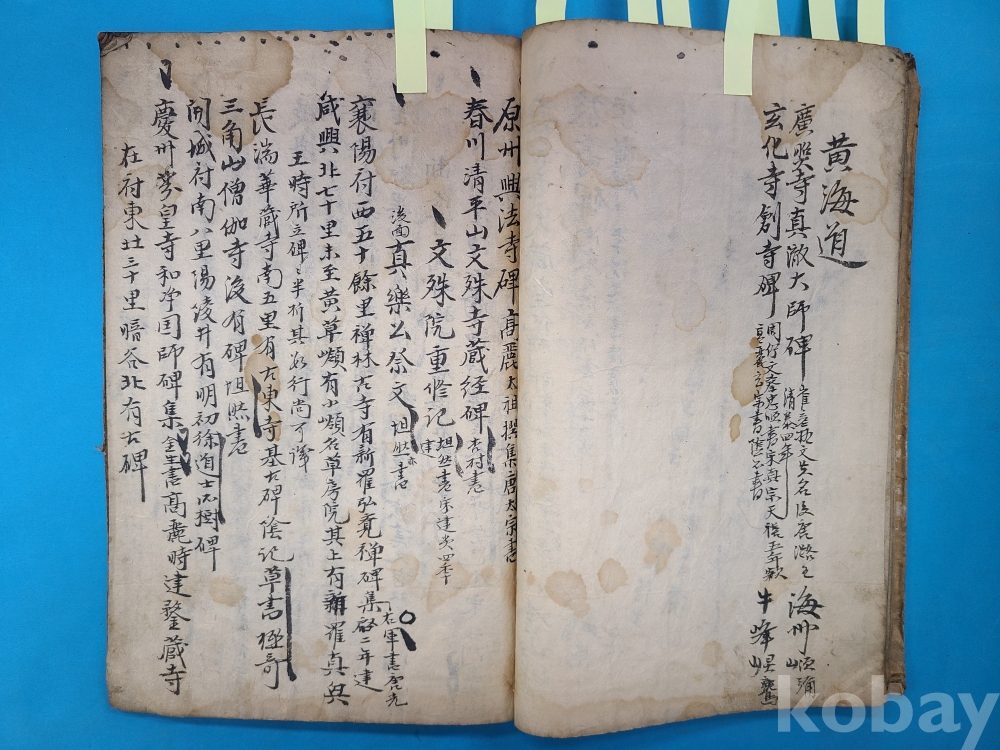 黄海道
廣照寺真澈大師碑 崔彦撝文 失名 後唐潞王 清泰四年 海州 須彌山
玄化寺創寺碑 周佇文 蔡忠順書 宋真宗天禧五年 牛峰
原州興法寺碑 高麗太祖撰集唐太宗書
春川清平山文殊寺蔵経碑 杏村書
文殊院重修記 坦然書 宋建炎四年
後面 真樂公祭文 坦然書
襄陽府西五十餘里禅林古寺有新羅弘覚禅碑集 二年建
咸興北七十里未至黄草嶺有小嶺名草房院其上有新羅真興
王時所立碑碑半折其数行尚可讀
長湍華蔵寺南五里有古東寺基古碑陰記草書極奇
三角山僧伽寺後有碑坦然書
開城府南八里陽陵井有明初徐道士所樹碑
慶州芬皇寺和净国師碑集金生書高麗時建鍪蔵寺
在府東北三十里暗谷北有古碑
kobay